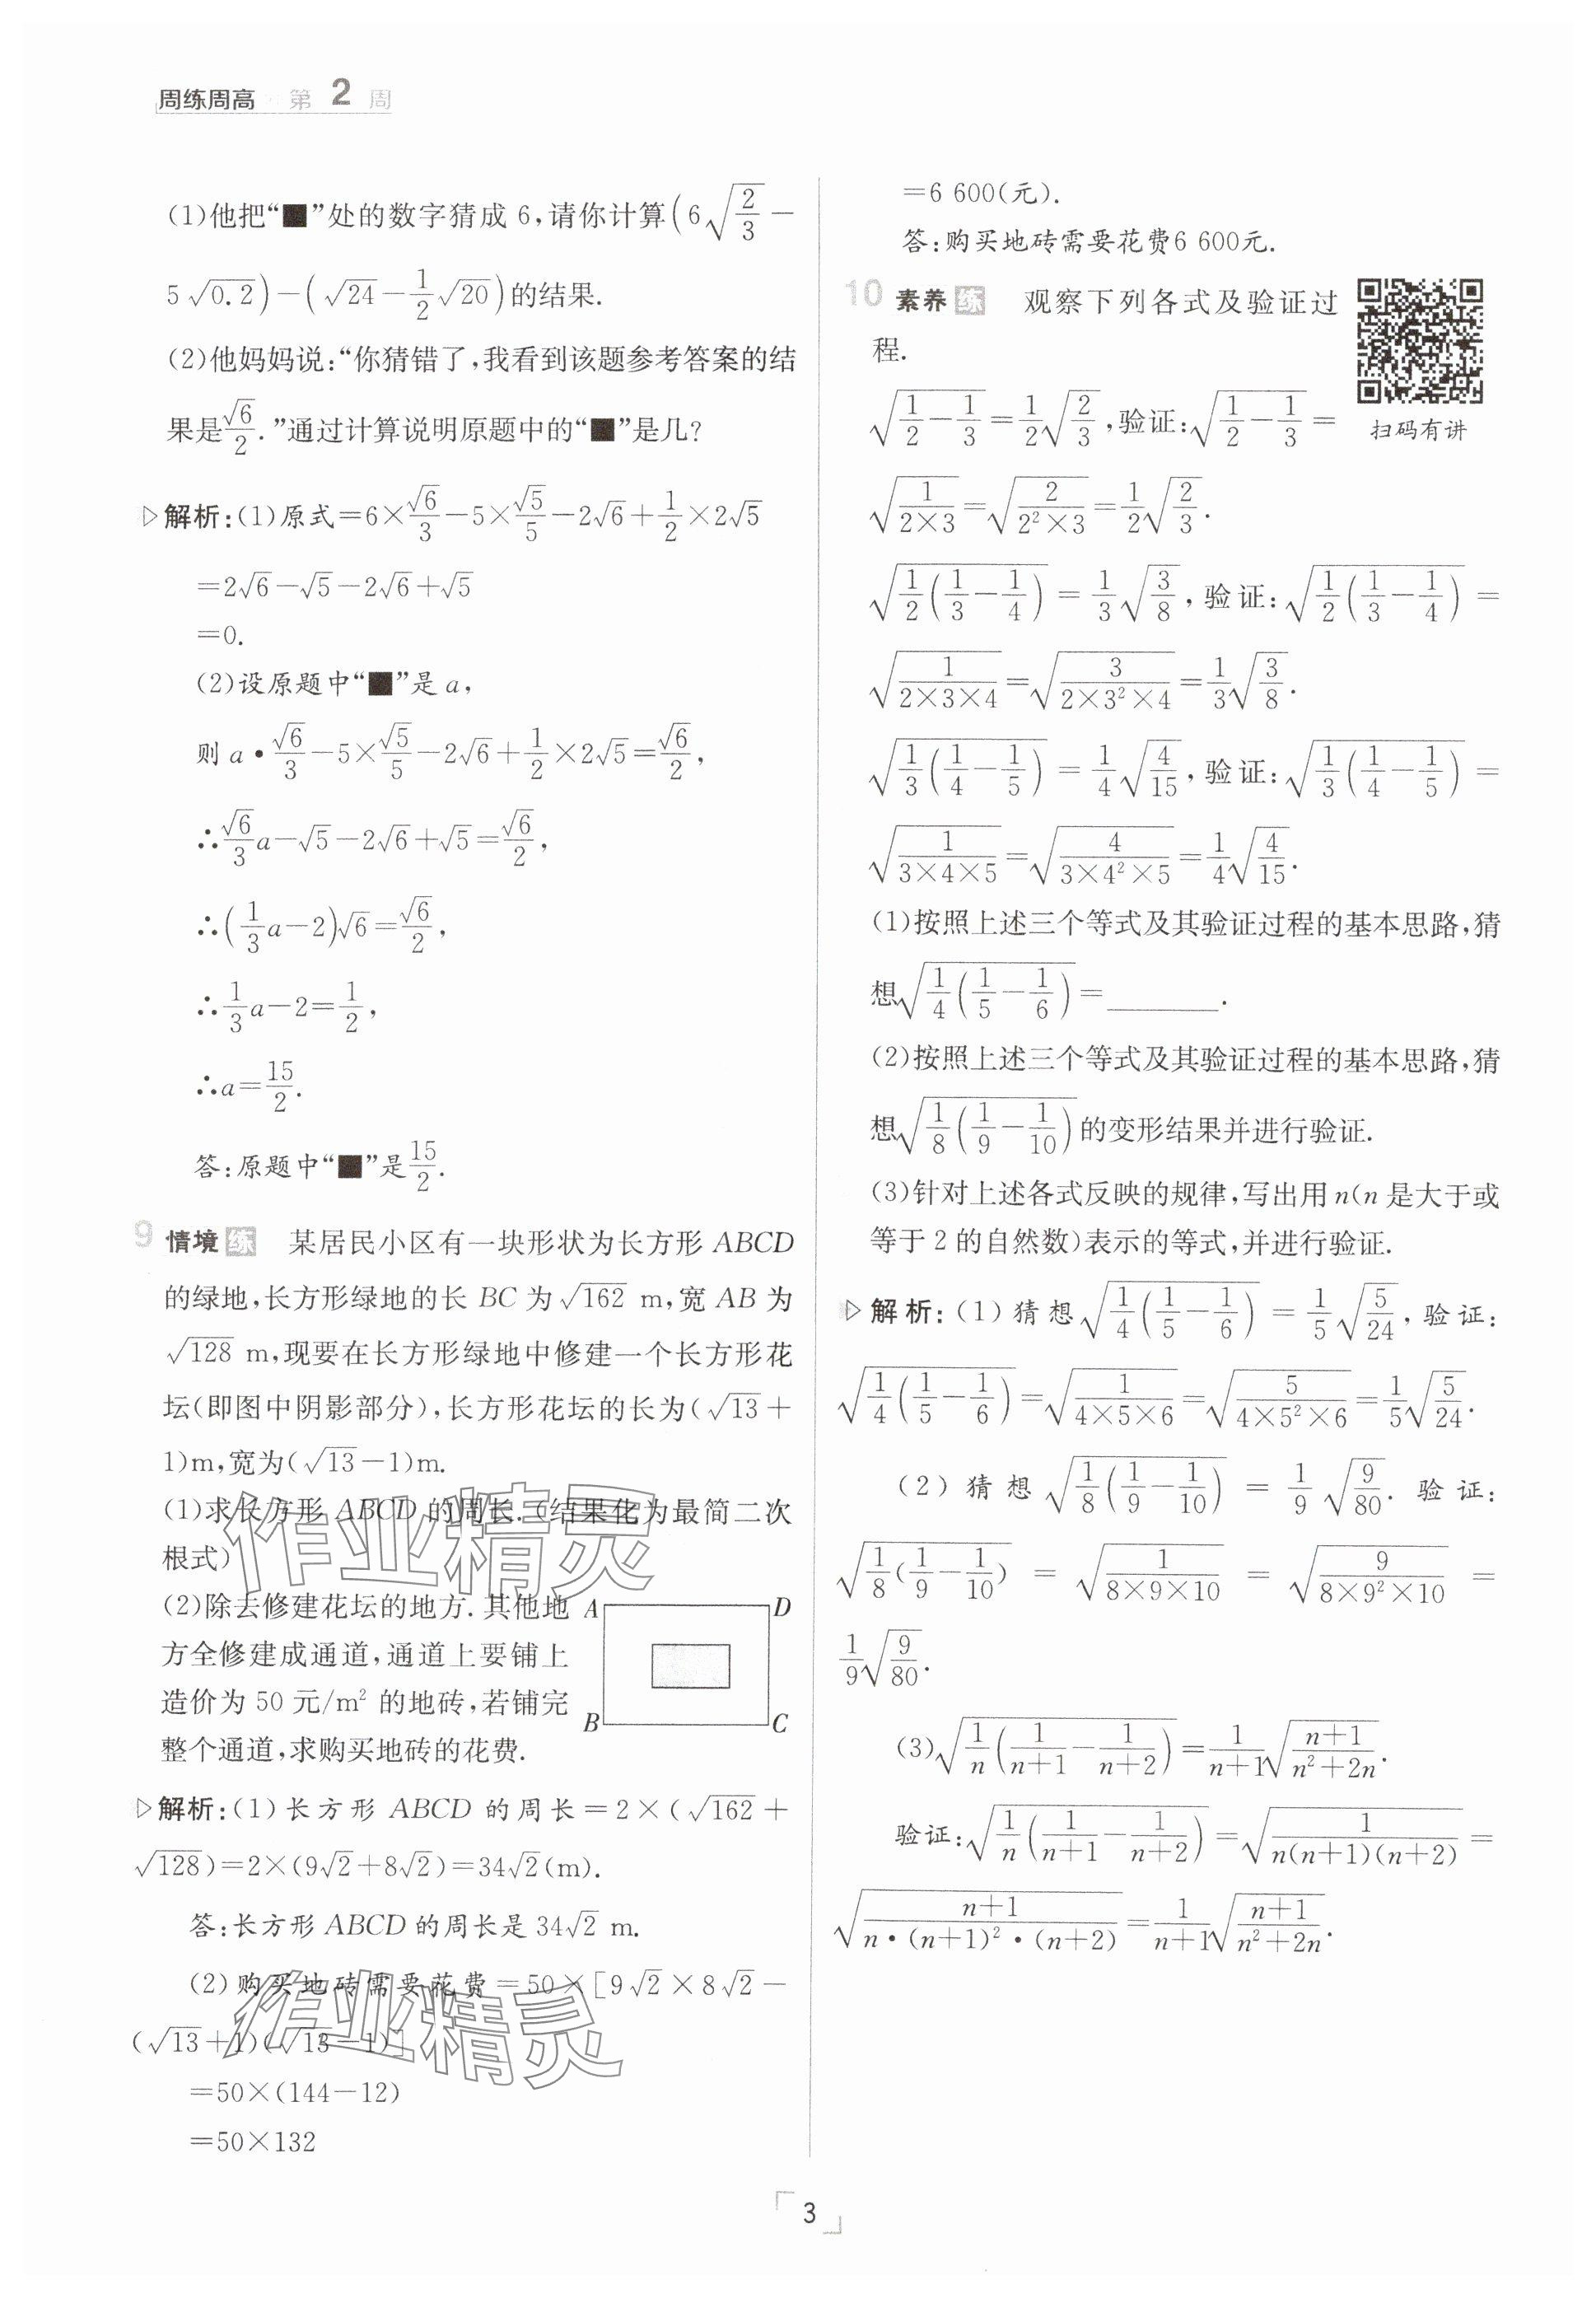 周练周高 第 2 周
(1)他把“■”处的数字猜成 6,请你计算(6√(2/3)−
5√0.2)−(√24−1/2√20)的结果.
(2)他妈妈说:“你猜错了,我看到该题参考答案的结
果是√6/2.”通过计算说明原题中的“■”是几?
▷解析:(1)原式=6×√6/3−5×√5/5−2√6+1/2×2√5
=2√6−√5−2√6+√5
=0.
(2)设原题中“■”是 a,
则 a·√6/3−5×√5/5−2√6+1/2×2√5=√6/2,
∴√6/3a−√5−2√6+√5=√6/2,
∴(1/3a−2)√6=√6/2,
∴1/3a−2=1/2,
∴a=15/2.
答:原题中“■”是15/2.
9 情境 练 某居民小区有一块形状为长方形 ABCD
的绿地,长方形绿地的长 BC 为√162 m,宽 AB 为
√128 m,现要在长方形绿地中修建一个长方形花
坛(即图中阴影部分),长方形花坛的长为(√13+
1)m,宽为(√13−1)m.
(1)求长方形 ABCD 的周长.(结果化为最简二次
根式)
(2)除去修建花坛的地方.其他地
方全修建成通道,通道上要铺上
造价为 50 元/m² 的地砖,若铺完
整个通道,求购买地砖的花费.
A D
B C
▷解析:(1)长方形 ABCD 的周长=2×(√162+
√128)=2×(9√2+8√2)=34√2(m).
答:长方形 ABCD 的周长是 34√2 m.
(2)购买地砖需要花费=50×[9√2×8√2−
(√13+1)(√13−1)]
=50×(144−12)
=50×132
=6 600(元).
答:购买地砖需要花费6 600元.
10 素养 练 观察下列各式及验证过
程.
扫码有讲
√(1/2−1/3)=1/2√(2/3),验证:√(1/2−1/3)=
√(1/(2×3))=√(2/(2²×3))=1/2√(2/3).
√(1/2(1/3−1/4))=1/3√(3/8),验证:√(1/2(1/3−1/4))=
√(1/(2×3×4))=√(3/(2×3²×4))=1/3√(3/8).
√(1/3(1/4−1/5))=1/4√(4/15),验证:√(1/3(1/4−1/5))=
√(1/(3×4×5))=√(4/(3×4²×5))=1/4√(4/15).
(1)按照上述三个等式及其验证过程的基本思路,猜
想√(1/4(1/5−1/6))=________.
(2)按照上述三个等式及其验证过程的基本思路,猜
想√(1/8(1/9−1/10))的变形结果并进行验证.
(3)针对上述各式反映的规律,写出用 n(n 是大于或
等于 2 的自然数)表示的等式,并进行验证.
▷解析:(1)猜想√(1/4(1/5−1/6))=1/5√(5/24),验证:
√(1/4(1/5−1/6))=√(1/(4×5×6))=√(5/(4×5²×6))=1/5√(5/24).
(2)猜想√(1/8(1/9−1/10))=1/9√(9/80).验证:
√(1/8(1/9−1/10))=√(1/(8×9×10))=√(9/(8×9²×10))=
1/9√(9/80).
(3)√(1/n(1/(n+1)−1/(n+2)))=1/(n+1)√((n+1)/(n²+2n)).
验证:√(1/n(1/(n+1)−1/(n+2)))=√(1/(n(n+1)(n+2)))=
√((n+1)/(n·(n+1)²·(n+2)))=1/(n+1)√((n+1)/(n²+2n)).
作业精灵
作业精灵
3